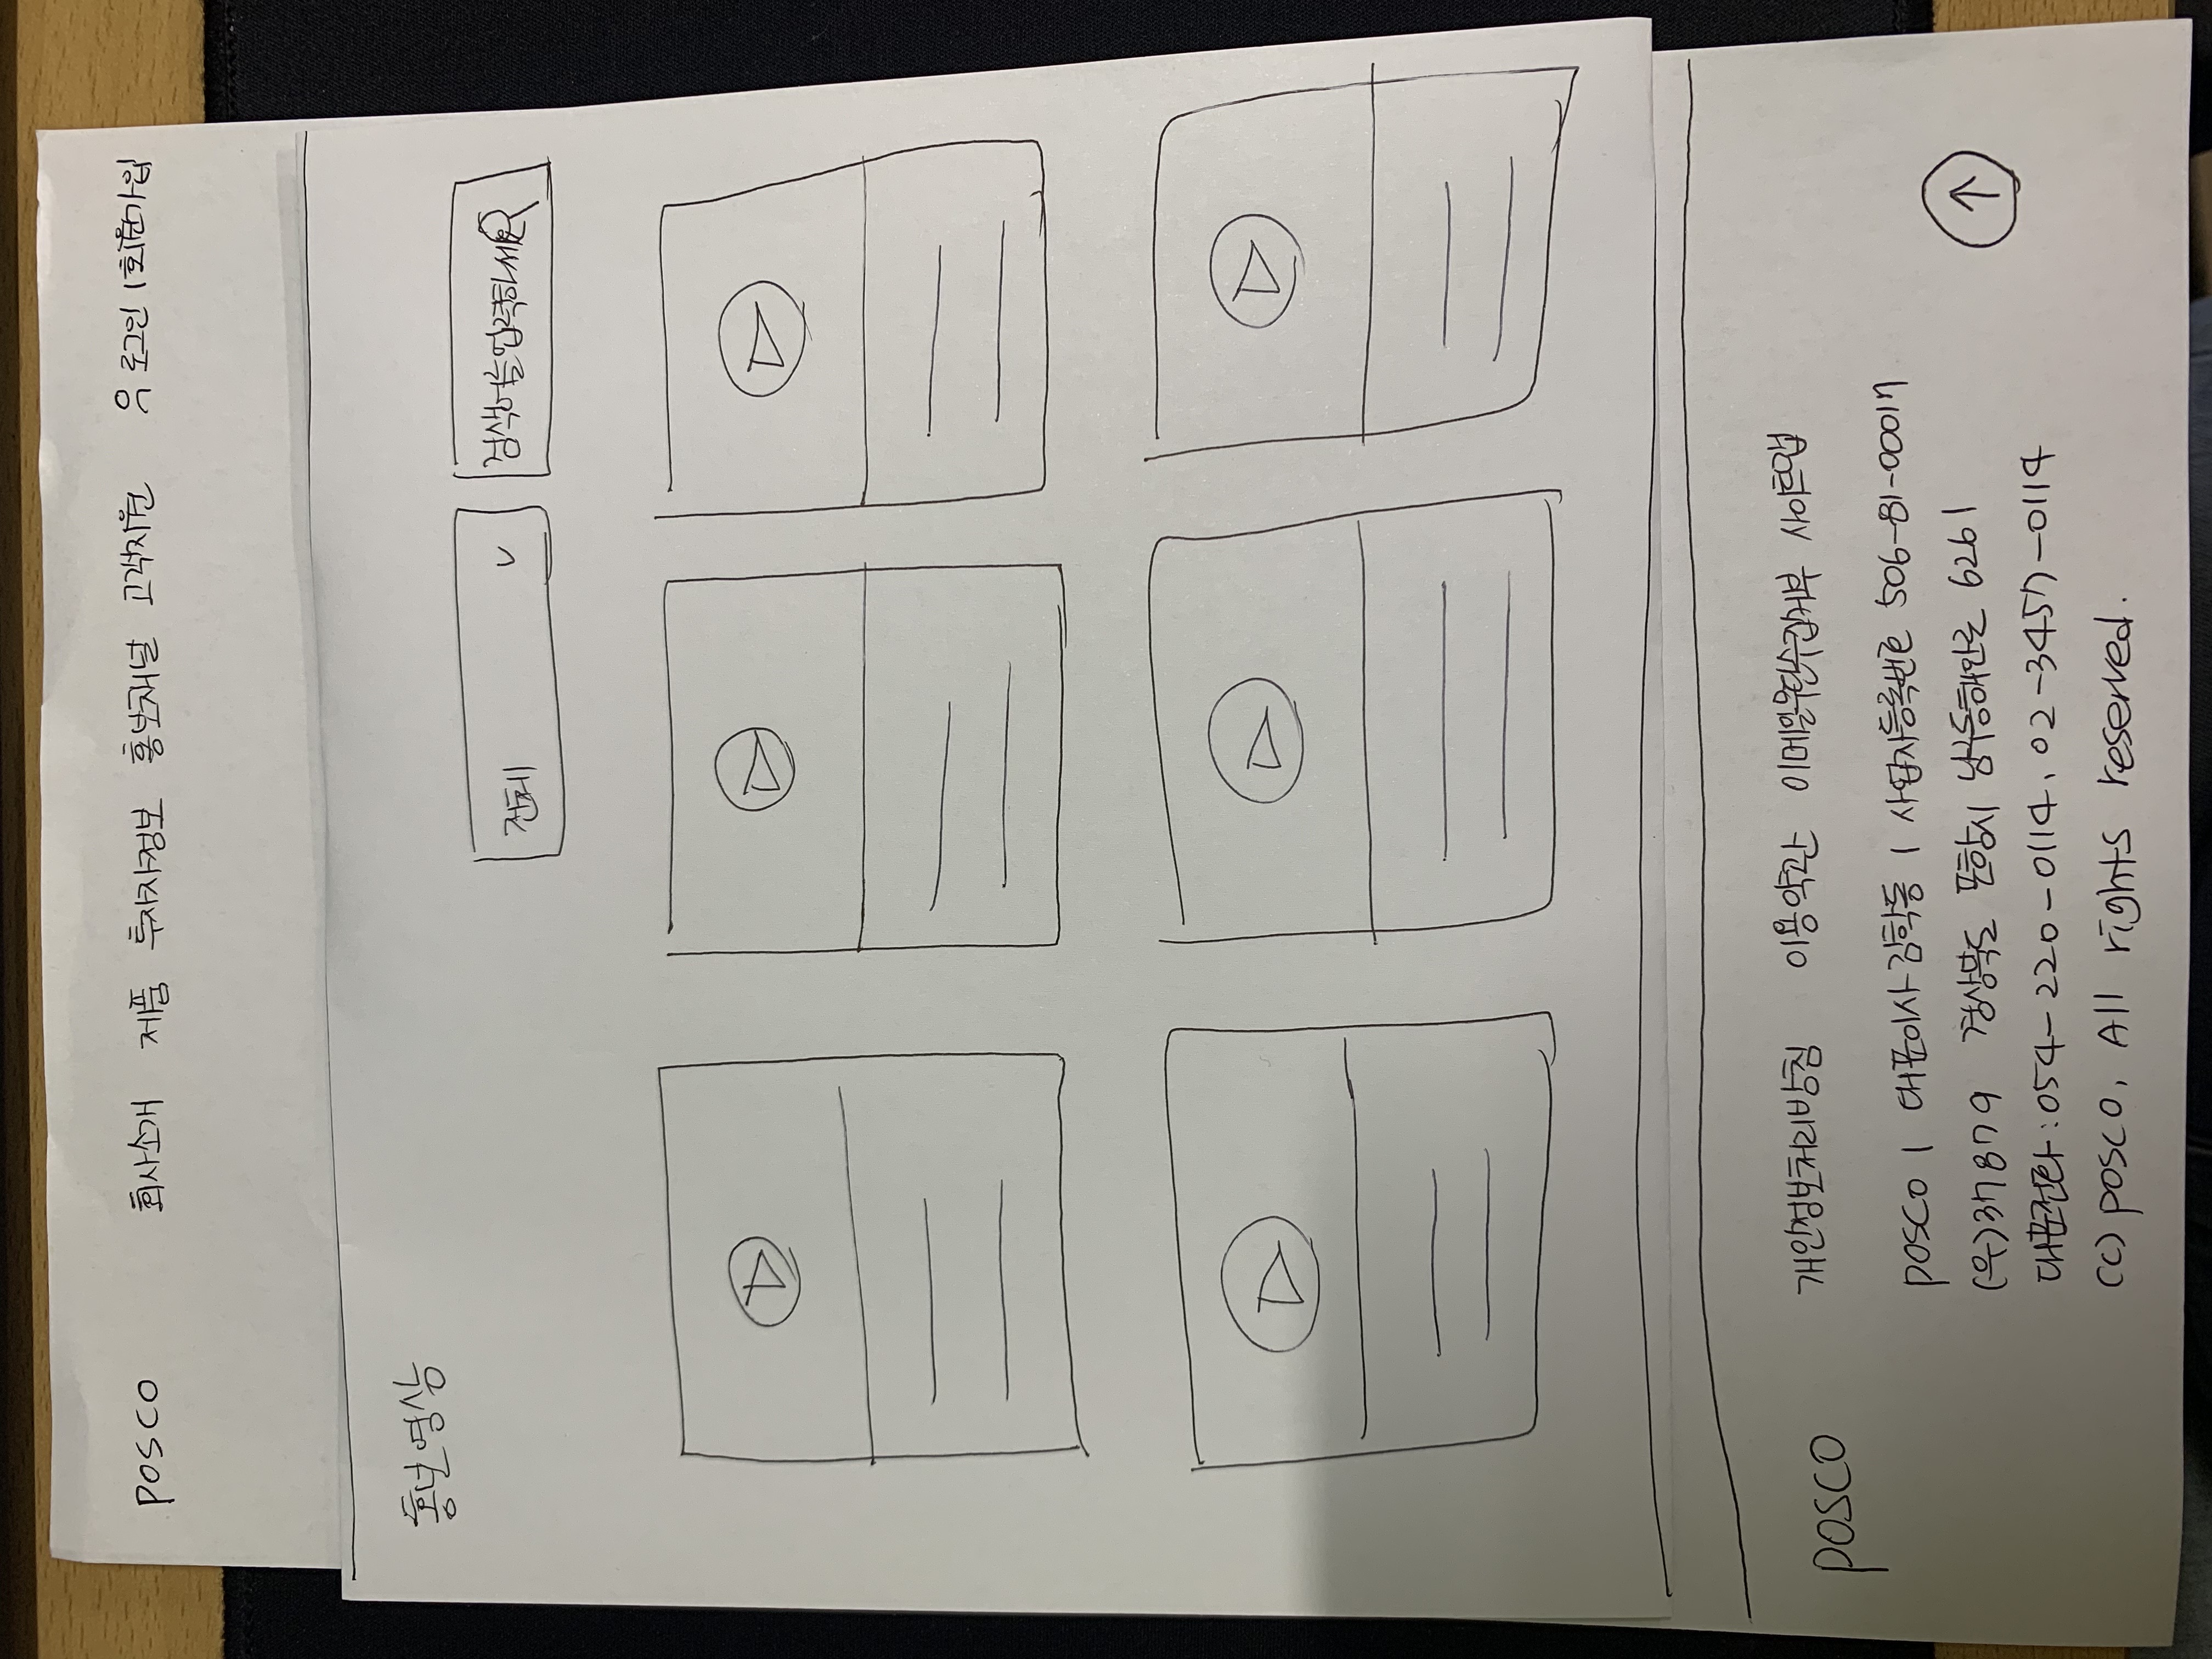 POSCO 회사소개 제품 투자자정보 홍보채널 고객지원 로그인 | 회원가입
홍보영상
전체 검색어를입력하세요
POSCO 개인정보처리방침 이용약관 이메일무단수집거부 사이트맵
POSCO | 대표이사 김학동 | 사업자등록번호 506-81-00017
(우)37879 경상북도 포항시 남구동해안로 6261
대표전화 : 054-220-0114, 02-3457-0114
(C) POSCO, All rights reserved.